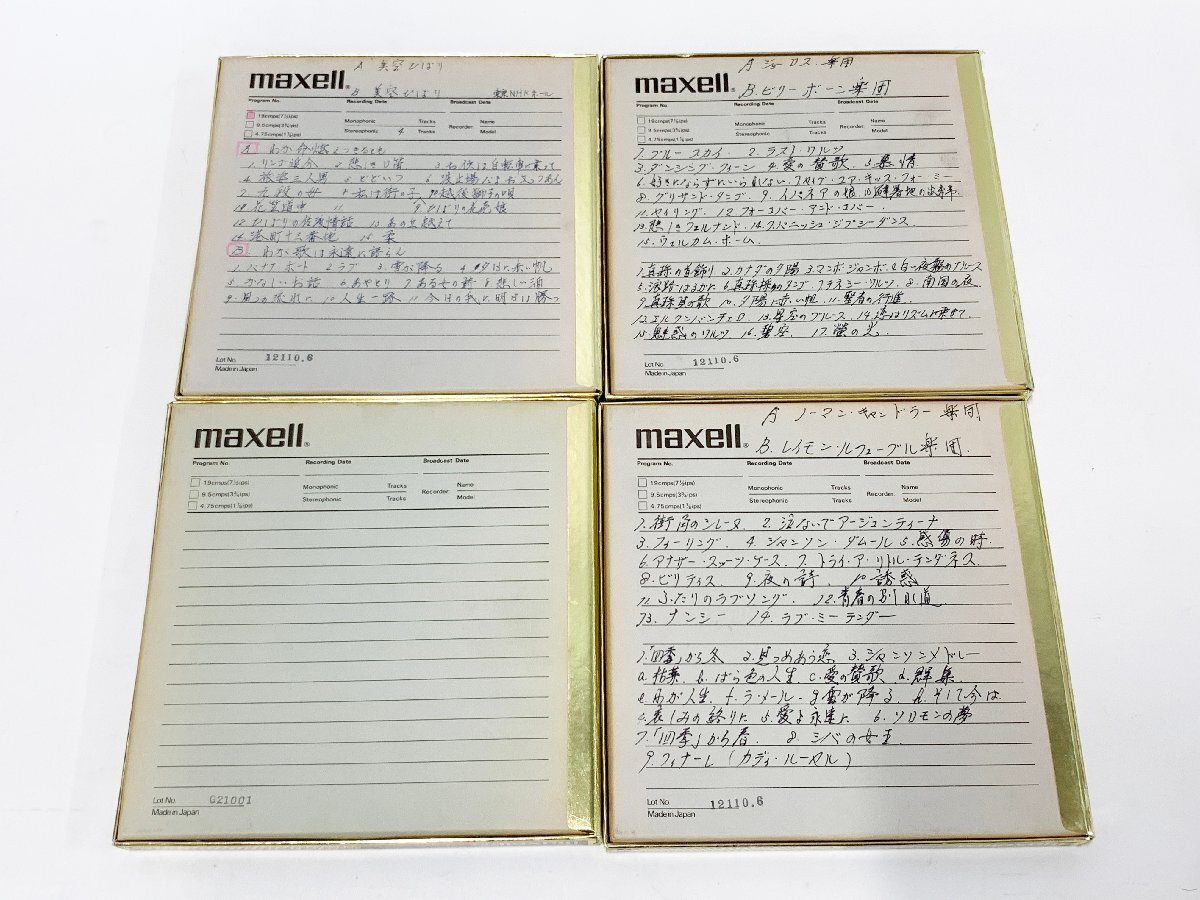 A 美空ひばり
maxell®
B 美空ひばり NHKホール
Program No. Recording Date Broadcast Date
19cmps(7½ips)
9.5cmps(3¾ips) Monophonic Tracks Recorder: Name
4.75cmps(1⅞ips) Stereophonic 4 Tracks Model
A わが命燃えつきるとも
1.リンゴ追分 2.悲しき口笛 3.お供は自転車に乗って
4.旅姿三人男 5.どどいつ 6.波止場だよお父つつあん
7.九段の母 8.私は街の子 9.越後獅子の唄
10.花笠道中 11. ひばりの花売娘
12.ひばりの佐渡情話 13.あの丘越えて
14.港町十三番地 15.柔
B わが歌は永遠に
1.バナナボート 2.ラブ 3.雪が降る 4.夕日に赤い帆
5.かなしいお話 6.あやとり 7.ある女の詩 8.悲しい酒
9.風の流れに 10.人生一路 11.今日の我に明日は勝つ
Lot No. 12110.6
Made in Japan
A 楽団
maxell®
B.ビリーボーン楽団
Program No. Recording Date Broadcast Date
19cmps(7½ips)
9.5cmps(3¾ips) Monophonic Tracks Recorder: Name
4.75cmps(1⅞ips) Stereophonic Tracks Model
1.ブルースカイ. 2.ラスト・ワルツ
3.ダンシング・クィーン 4.愛の賛歌 5.慕情
6.好きにならずにいられない. 7.セイブ・ユア・キッス・フォー・ミー
8.ブリザンド・タンゴ. 9.イパネマの娘. 10.
11.セイリング. 12.フォーエバー・アンド・エバー.
13.悲しきフェルナンド. 14.スパニッシュ・ジプシーダンス.
15.ウェルカム・ホーム.
1.真珠の首飾り 2.カナダの夕陽 3.マンボジャンボ. 4.白い夜霧のブルース
5.波路はるかに 6.真珠採りのタンゴ 7.テネシー・ワルツ. 8.南国の夜.
9.真珠貝の歌 10.夕陽に赤い帆 11.聖者の行進.
12.エルクンバンチェロ 13.星空のブルース. 14.峠はリズムに乗せて.
15.魅惑のワルツ 16.碧空. 17.螢の光.
Lot No. 12110.6
Made in Japan
maxell®
Program No. Recording Date Broadcast Date
19cmps(7½ips)
9.5cmps(3¾ips) Monophonic Tracks Recorder: Name
4.75cmps(1⅞ips) Stereophonic Tracks Model
Lot No. G21001
Made in Japan
A ノーマン・キャンドラー楽団
maxell®
B.レイモン・ルフェーブル楽団.
Program No. Recording Date Broadcast Date
19cmps(7½ips)
9.5cmps(3¾ips) Monophonic Tracks Recorder: Name
4.75cmps(1⅞ips) Stereophonic Tracks Model
1.街角のシレーヌ. 2.泣ないでアージェンティーナ
3.フィーリング. 4.シャンソン・ダムール 5.感傷の時.
6.アナザー・スーツ・ケース. 7.トライ・ア・リトル・テンダネス.
8.ビリティス 9.夜の詩. 10.誘惑
11.ふたりのラブソング. 12.青春の別れ道
13.ナンシー 14.ラブ・ミーテンダー
1.「四季」から冬 2.見つめあう恋. 3.シャンソンメドレー
a.枯葉 b.ばら色の人生. c.愛の賛歌 d.群集
e.わが人生. f.ラ・メール. g.雪が降る. h.そして今は
4.哀しみの終りに 5.愛よ永遠に 6.ソロモンの夢
7.「四季」から春. 8.シバの女王.
9.フィナーレ(カディ・ルーセル)
Lot No. 12110.6
Made in Japan